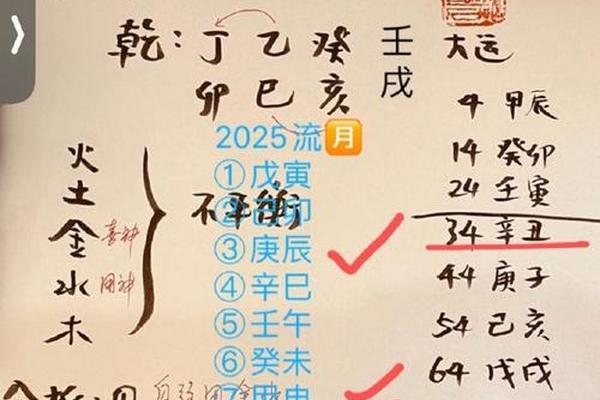 乾：丁乙癸壬大运
卯巳亥戌
2025流月
①戊寅
②己卯
③庚辰
④辛巳
⑤壬午
⑥癸未
不平衡
火
土
金 喜神
水 用神
木
4 甲辰
14 癸卯
24 壬寅
34 辛丑
44 庚子
54 己亥
64 戊戌